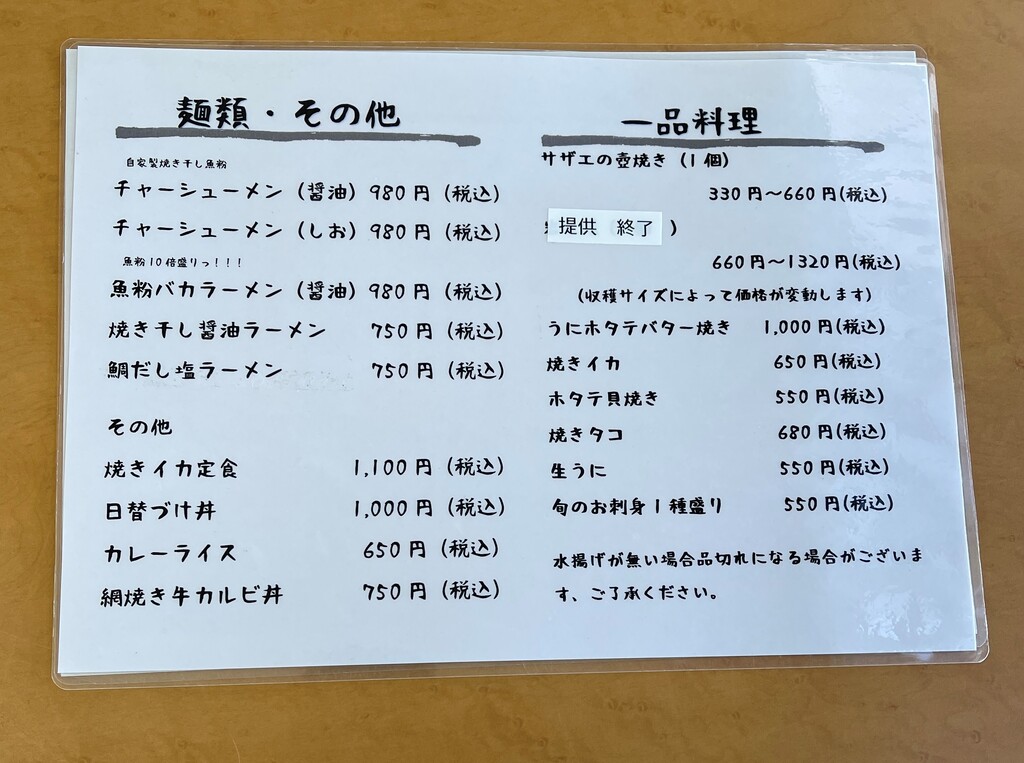 麺類・その他
自家製焼き干し魚粉
チャーシューメン（醤油）980円（税込）
チャーシューメン（しお）980円（税込）
魚粉10倍盛りっ！！！
魚粉バカラーメン（醤油）980円（税込）
焼き干し醤油ラーメン 750円（税込）
鯛だし塩ラーメン 750円（税込）
その他
焼きイカ定食 1,100円（税込）
日替づけ丼 1,000円（税込）
カレーライス 650円（税込）
網焼き牛カルビ丼 750円（税込）
一品料理
サザエの壺焼き（1個）
330円〜660円(税込)
提供 終了 ）
660円〜1320円(税込)
（収穫サイズによって価格が変動します）
うにホタテバター焼き 1,000円(税込)
焼きイカ 650円(税込)
ホタテ貝焼き 550円(税込)
焼きタコ 680円(税込)
生うに 550円(税込)
旬のお刺身1種盛り 550円(税込)
水揚げが無い場合品切れになる場合がございま
す、ご了承ください。